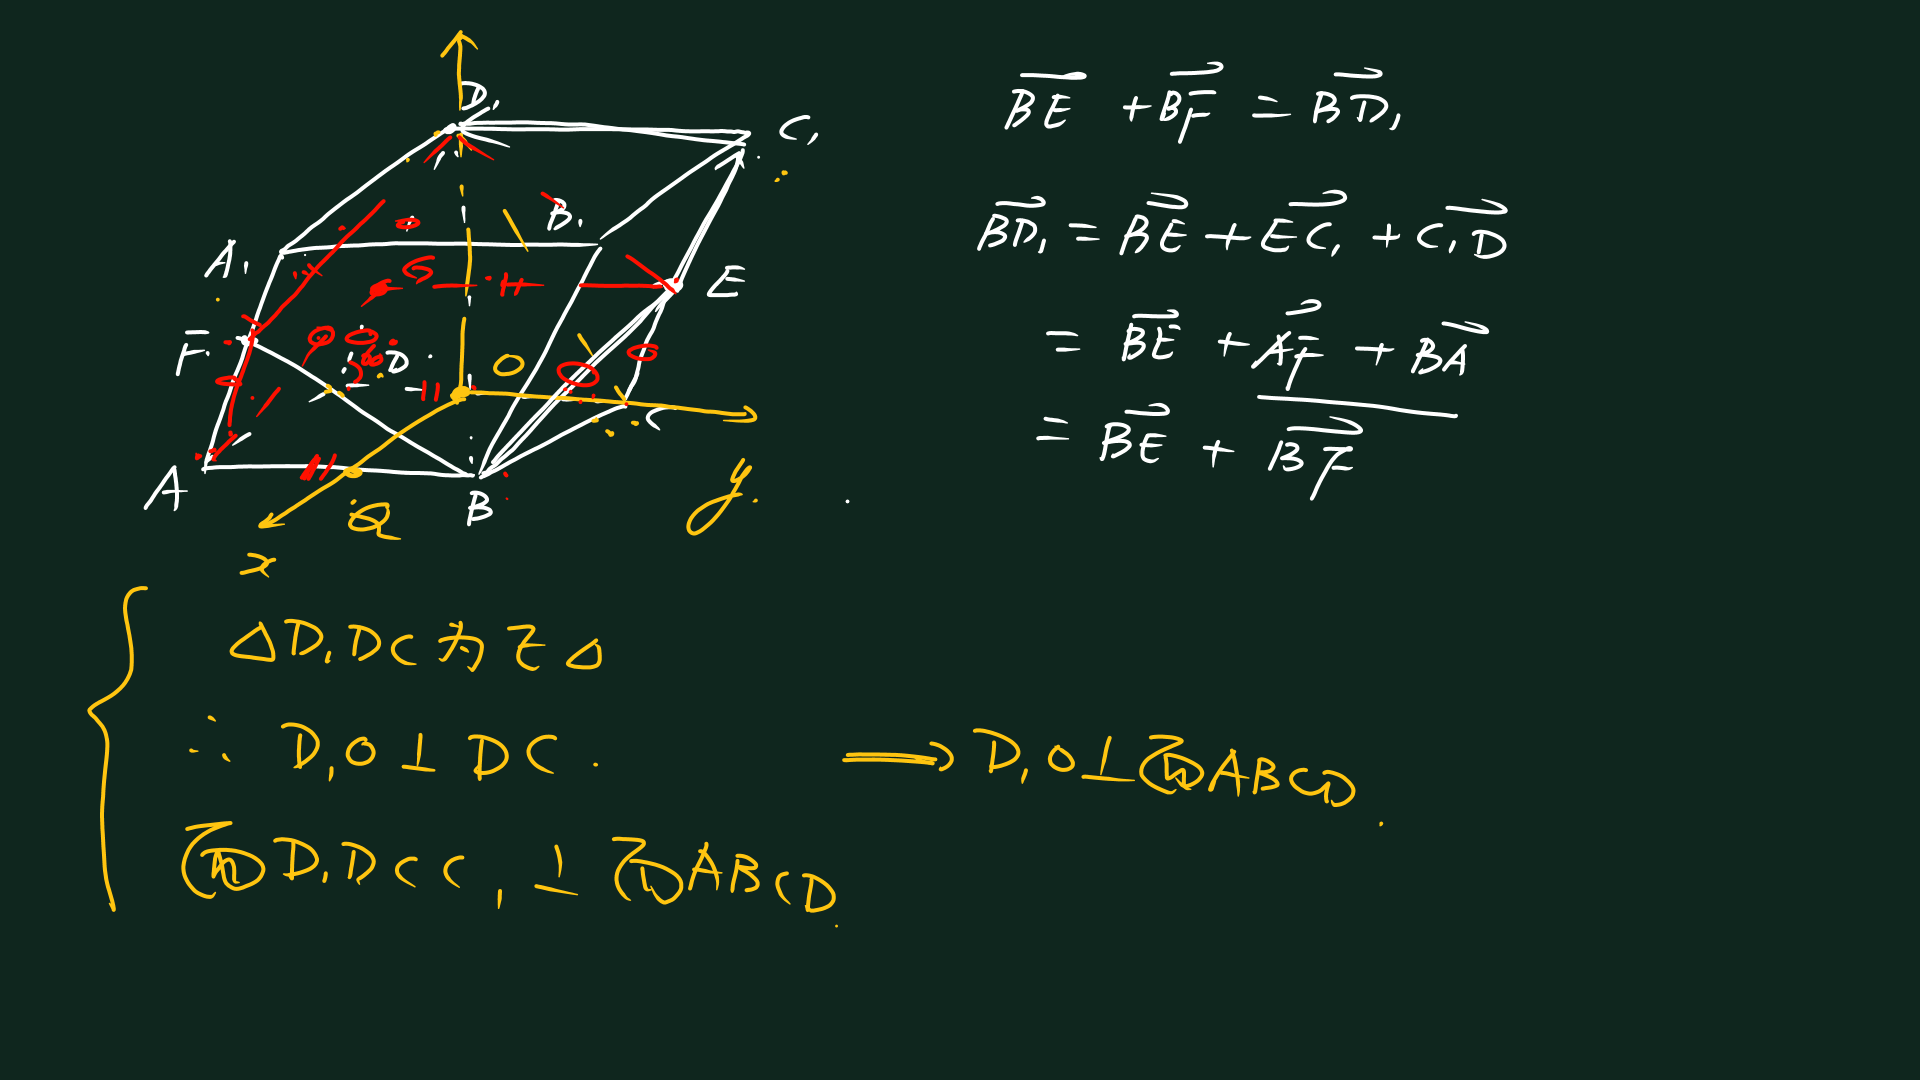 D₁
C₁
B₁
A₁
G
H
E
F
D
O
C
A
B
Q
x
y
BE + BF = BD₁
BD₁ = BE + EC₁ + C₁D
= BE + AF + BA
= BE + BF
△D₁DC为正△
∴ D₁O⊥DC.
⟹ D₁O⊥面ABCD.
面D₁DCC₁⊥面ABCD.